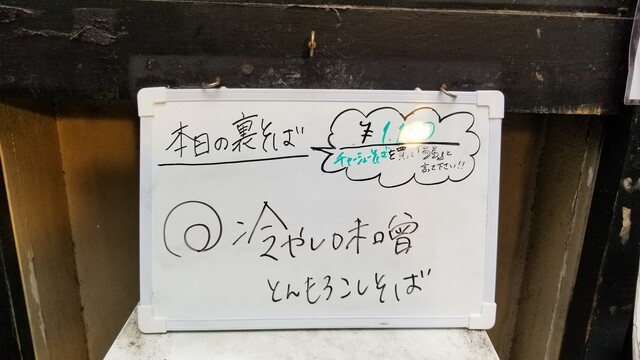 本日の裏そば
¥1,100
チャーシューそばを買って「裏」と
言って下さい!!
冷やし味噌
とんもろこしそば